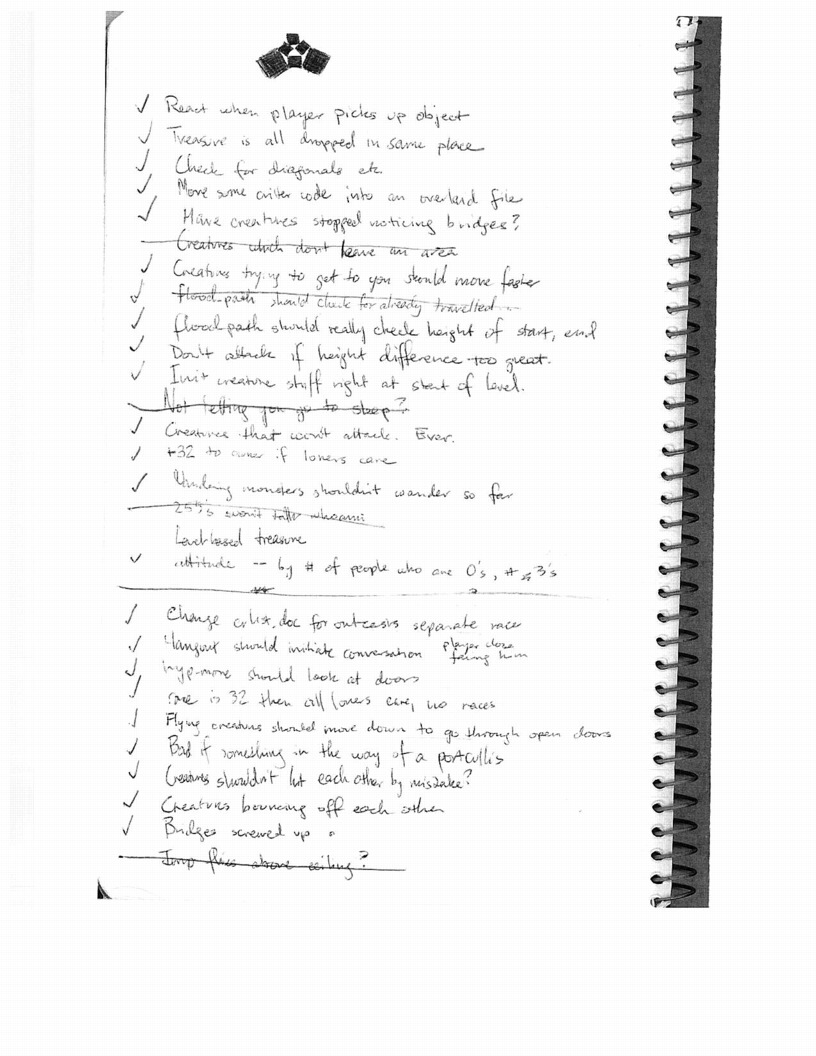 ✓ React when player picks up object
✓ Treasure is all dropped in same place
✓ Check for diagonals etc.
✓ Move some critter code into an overlaid file
✓ Have creatures stopped noticing bridges?
Creatures which don't leave an area
✓ Creatures trying to get to you should move faster
✓ flood-path should check for already travelled
✓ flood-path should really check height of start, end
✓ Don't attack if height difference too great.
✓ Init creature stuff right at start of level.
Not letting you go to sleep?
✓ Creatures that won't attack. Ever.
✓ +32 to owner if loners care
✓ monsters shouldn't wander so far
255's won't talk whoami
Level-based treasure
✓ attitude -- by # of people who are 0's, # 3's
✓ Change .doc for outcasts separate race
✓ Hangout should initiate conversation player close
facing him
✓ should look at doors
✓ is 32 then all loners care, no races
✓ Flying creatures should move down to go through open doors
✓ Bad if something in the way of a portcullis
✓ Creatures shouldn't hit each other by mistake?
✓ Creatures bouncing off each other
✓ Bridges screwed up
Jump flies above ceiling?